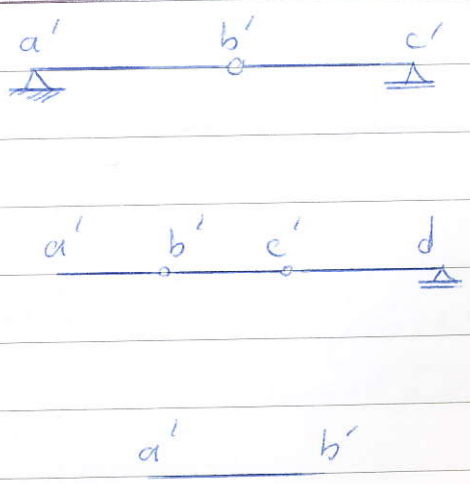 a' b' c'
a' b' c' d
a' b'